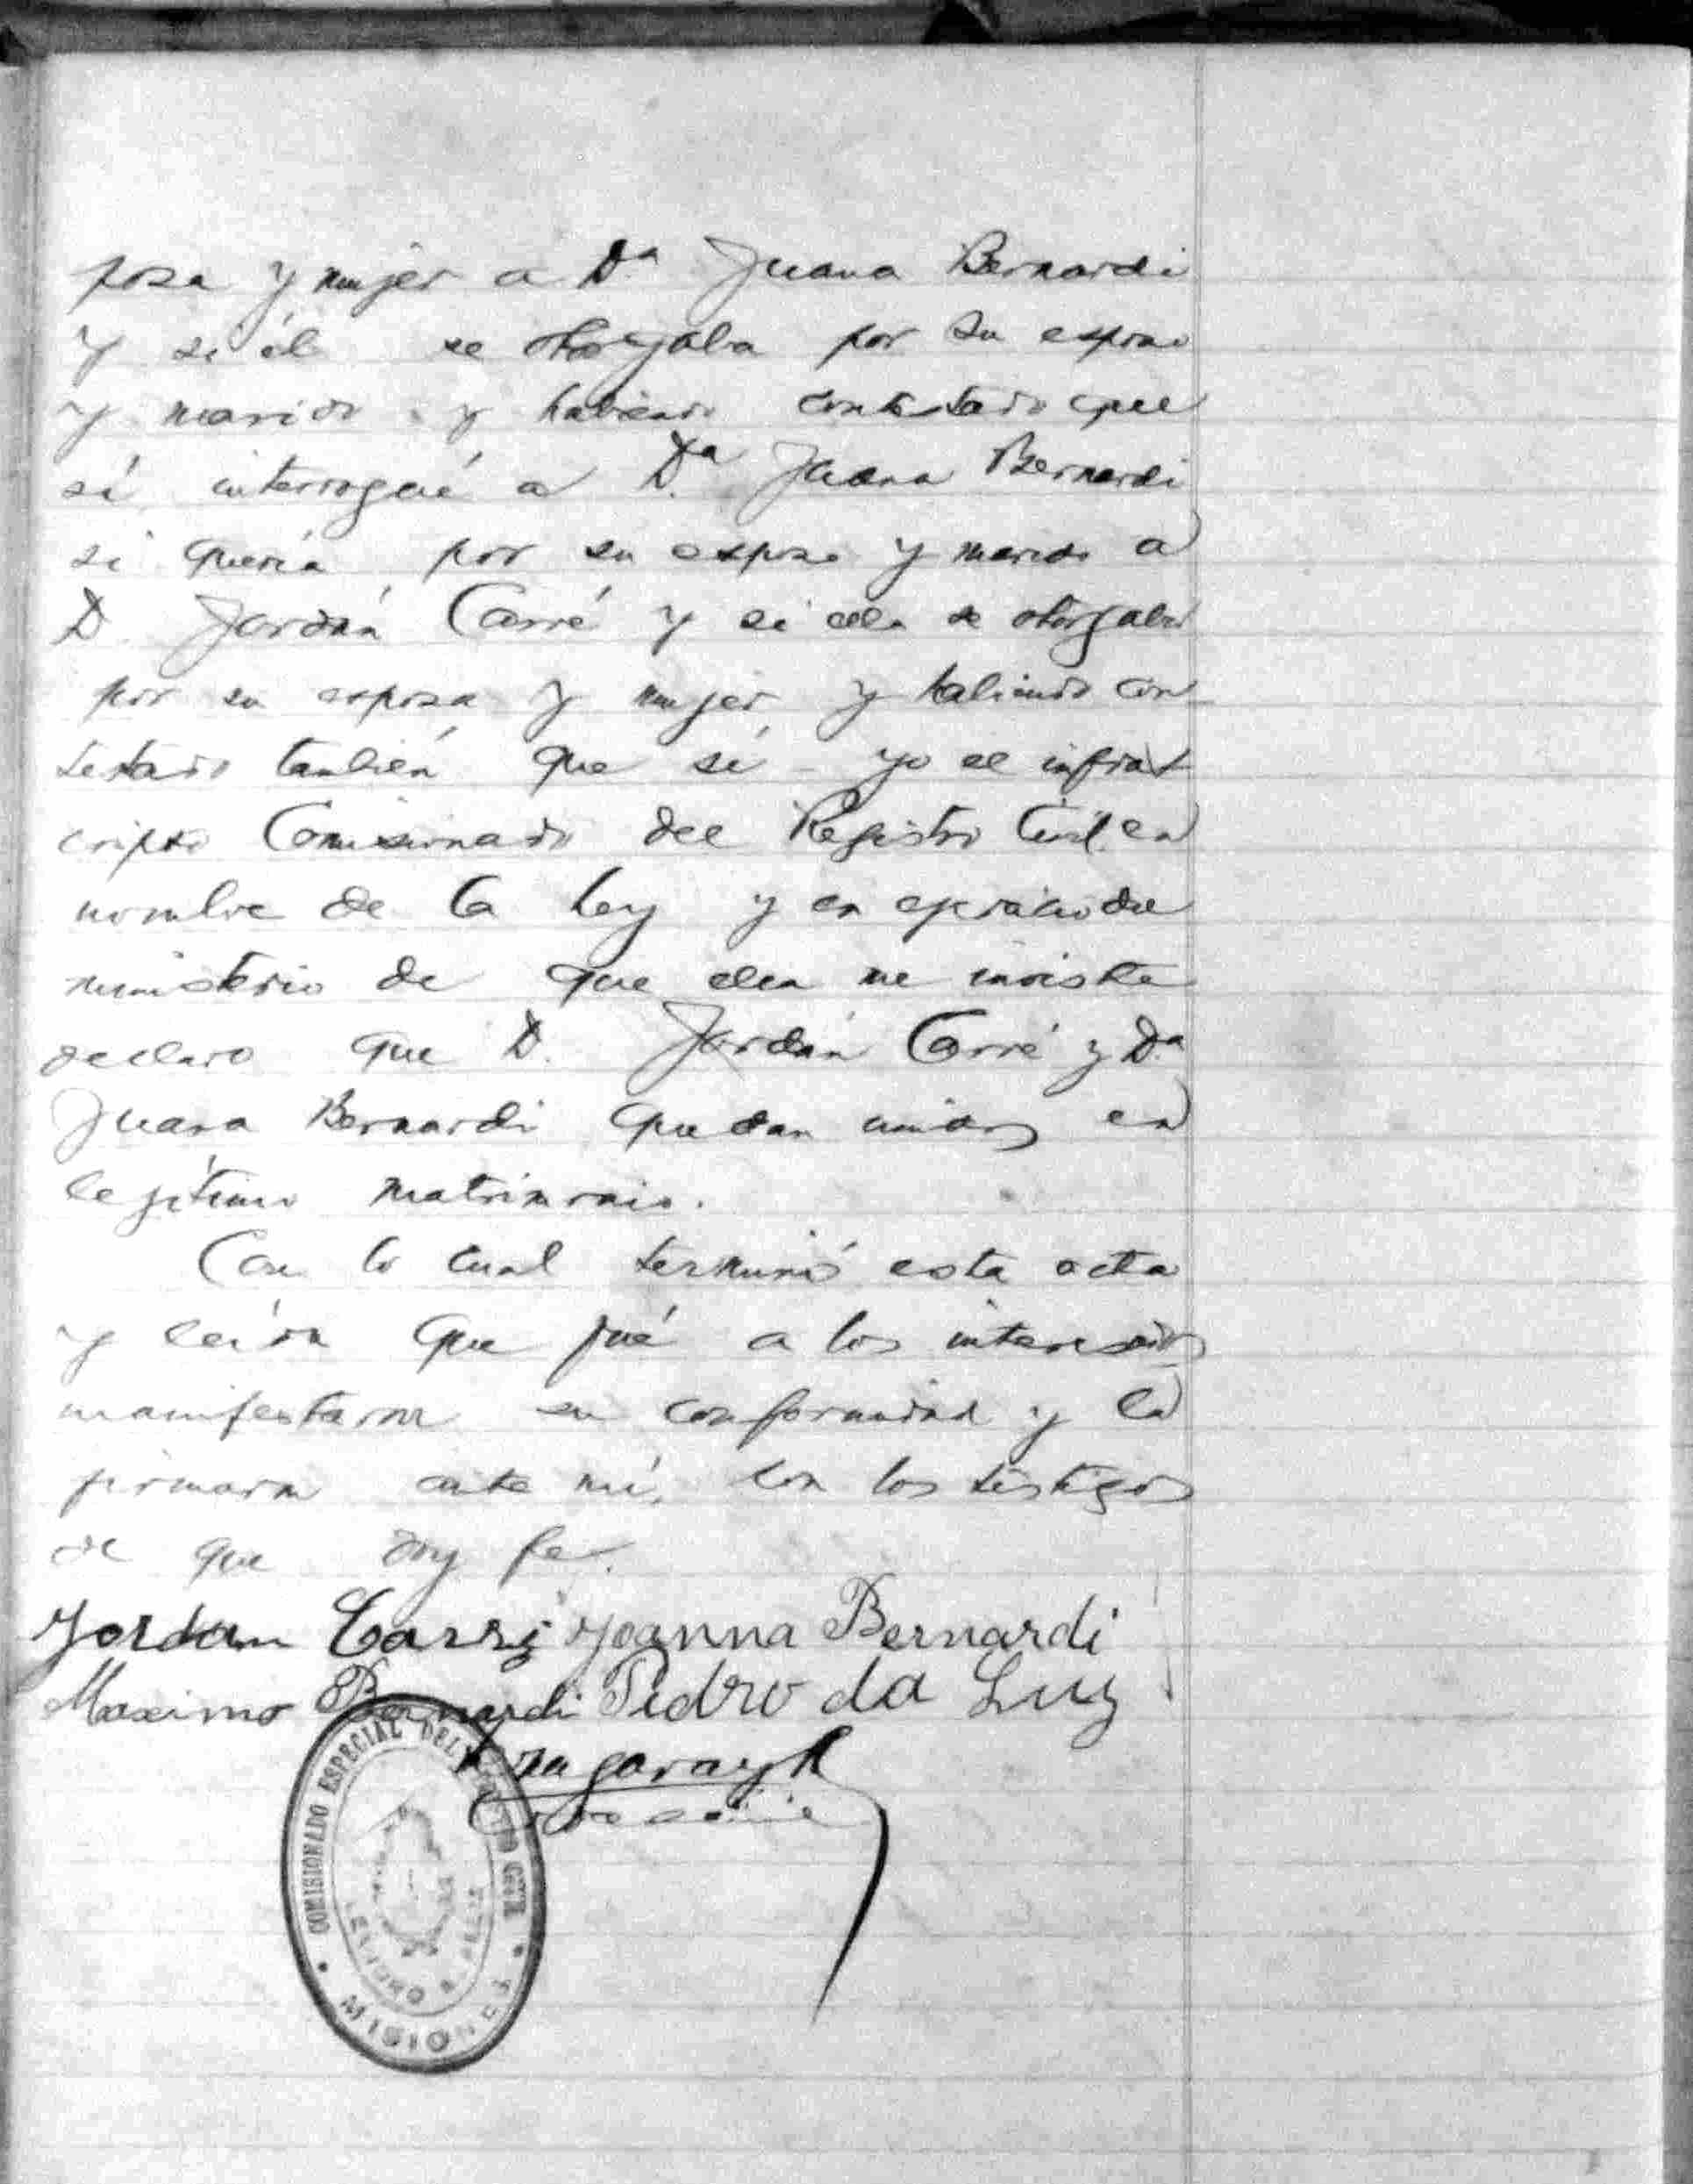 posa y mujer a Dª Juana Bernardi
y si él se otorgaba por su esposo
y marido y habiendo contestado que
sí interrogué a Dª Juana Bernardi
si quería por su esposo y marido a
D Jordán Carré y si ella se otorgaba
por su esposa y mujer y habiendo con
testado también que sí yo el infras
cripto Comisionado del Registro Civil en
nombre de la ley y en ejercicio del
ministerio de que ella me inviste
declaro que D. Jordán Carré y Dª
Juana Bernardi quedan unidos en
legítimo matrimonio.
Con lo cual terminó esta acta
y leída que fué a los interesados
manifestaron su conformidad y la
firmaron ante mí, con los testigos
de que doy fe.
Jordam Carré Joanna Bernardi
Maximo Bernardi Pedro da Luz
COMISIONADO ESPECIAL DEL REGISTRO CIVIL
MISIONES